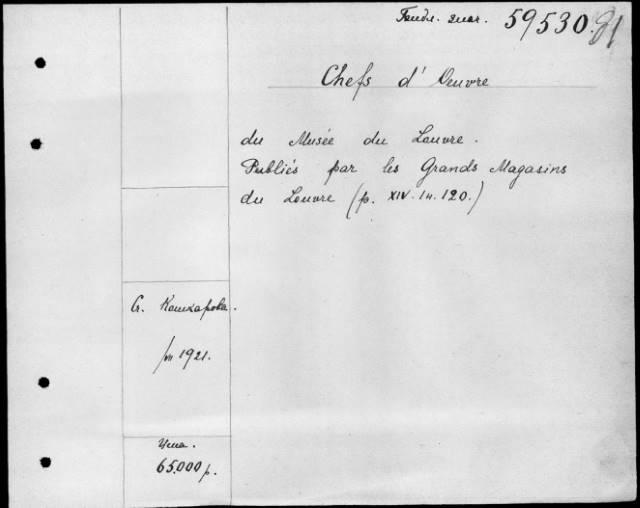 59530.
Chefs d'Oeuvre
du Musée du Louvre.
Publiés par les Grands Magasins
du Louvre (p. XIV. In. 120.)
Ст. Кашкарова.
/VII 1921.
Цена.
65.000 р.